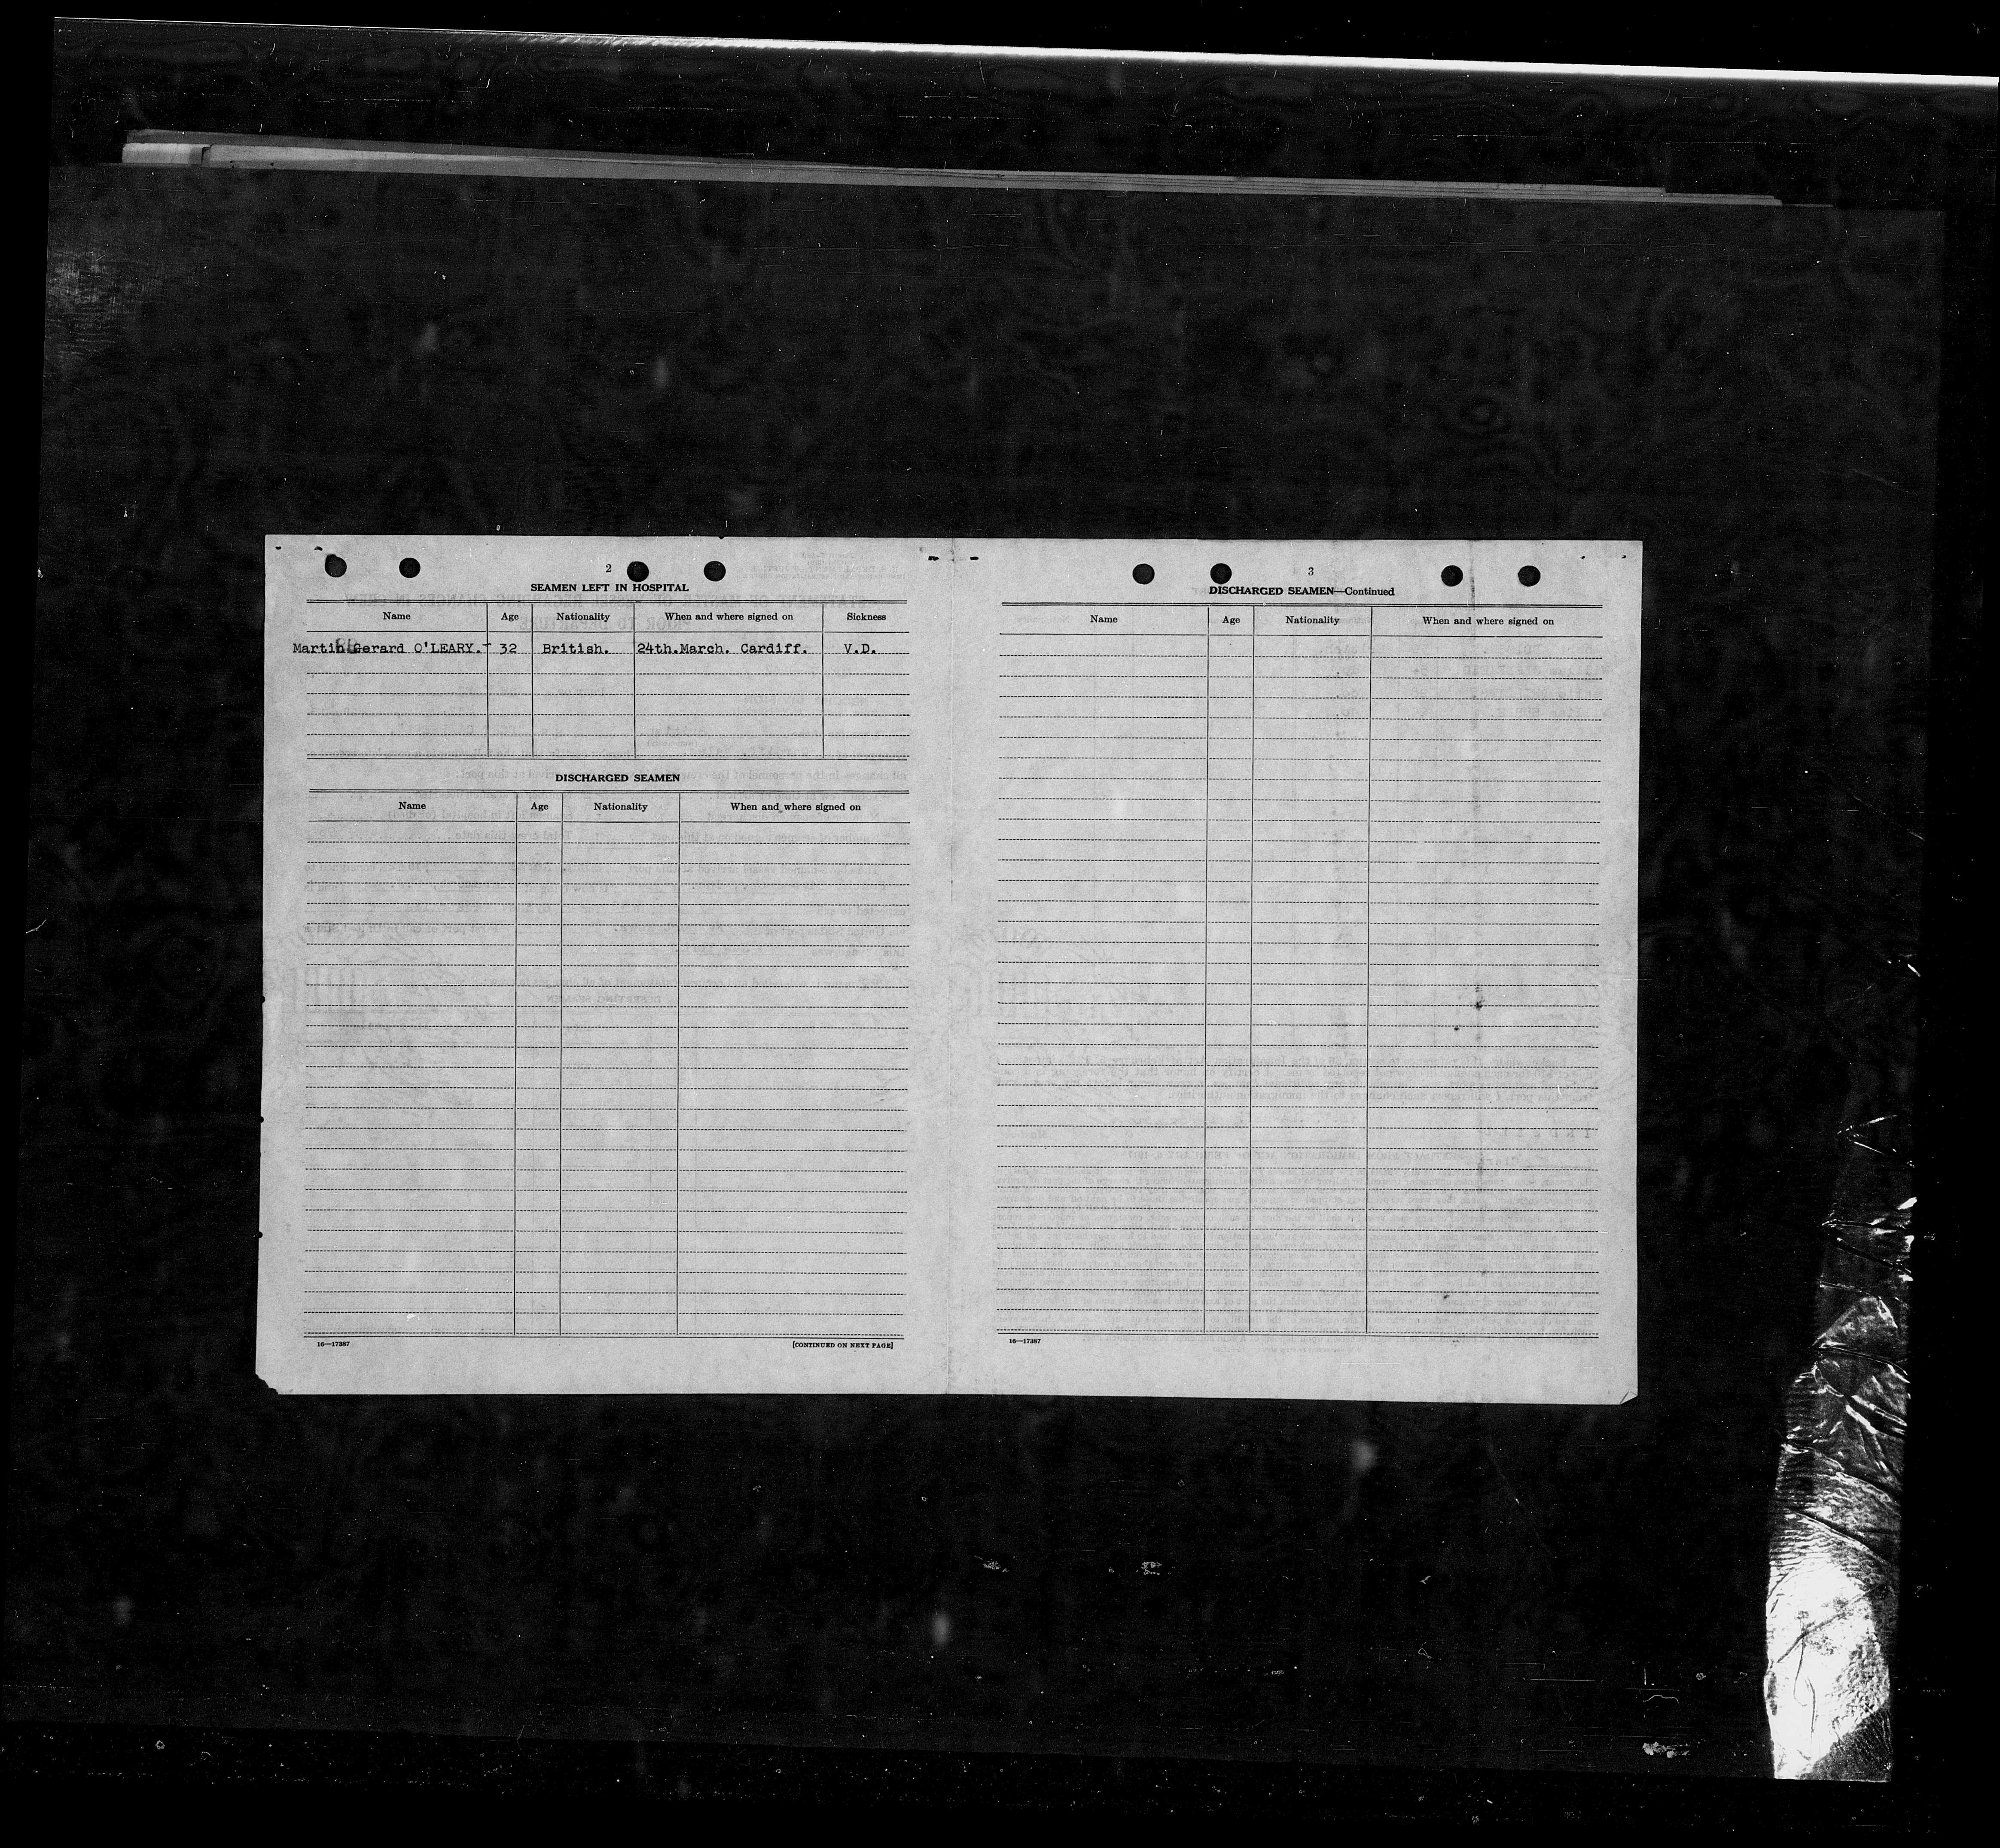 2
SEAMEN LEFT IN HOSPITAL
Name Age Nationality When and where signed on Sickness
Martin Gerard O'LEARY.- 32 British. 24th.March. Cardiff. V.D.
DISCHARGED SEAMEN
Name Age Nationality When and where signed on
16—17387 [CONTINUED ON NEXT PAGE]
3
DISCHARGED SEAMEN—Continued
Name Age Nationality When and where signed on
16—17387